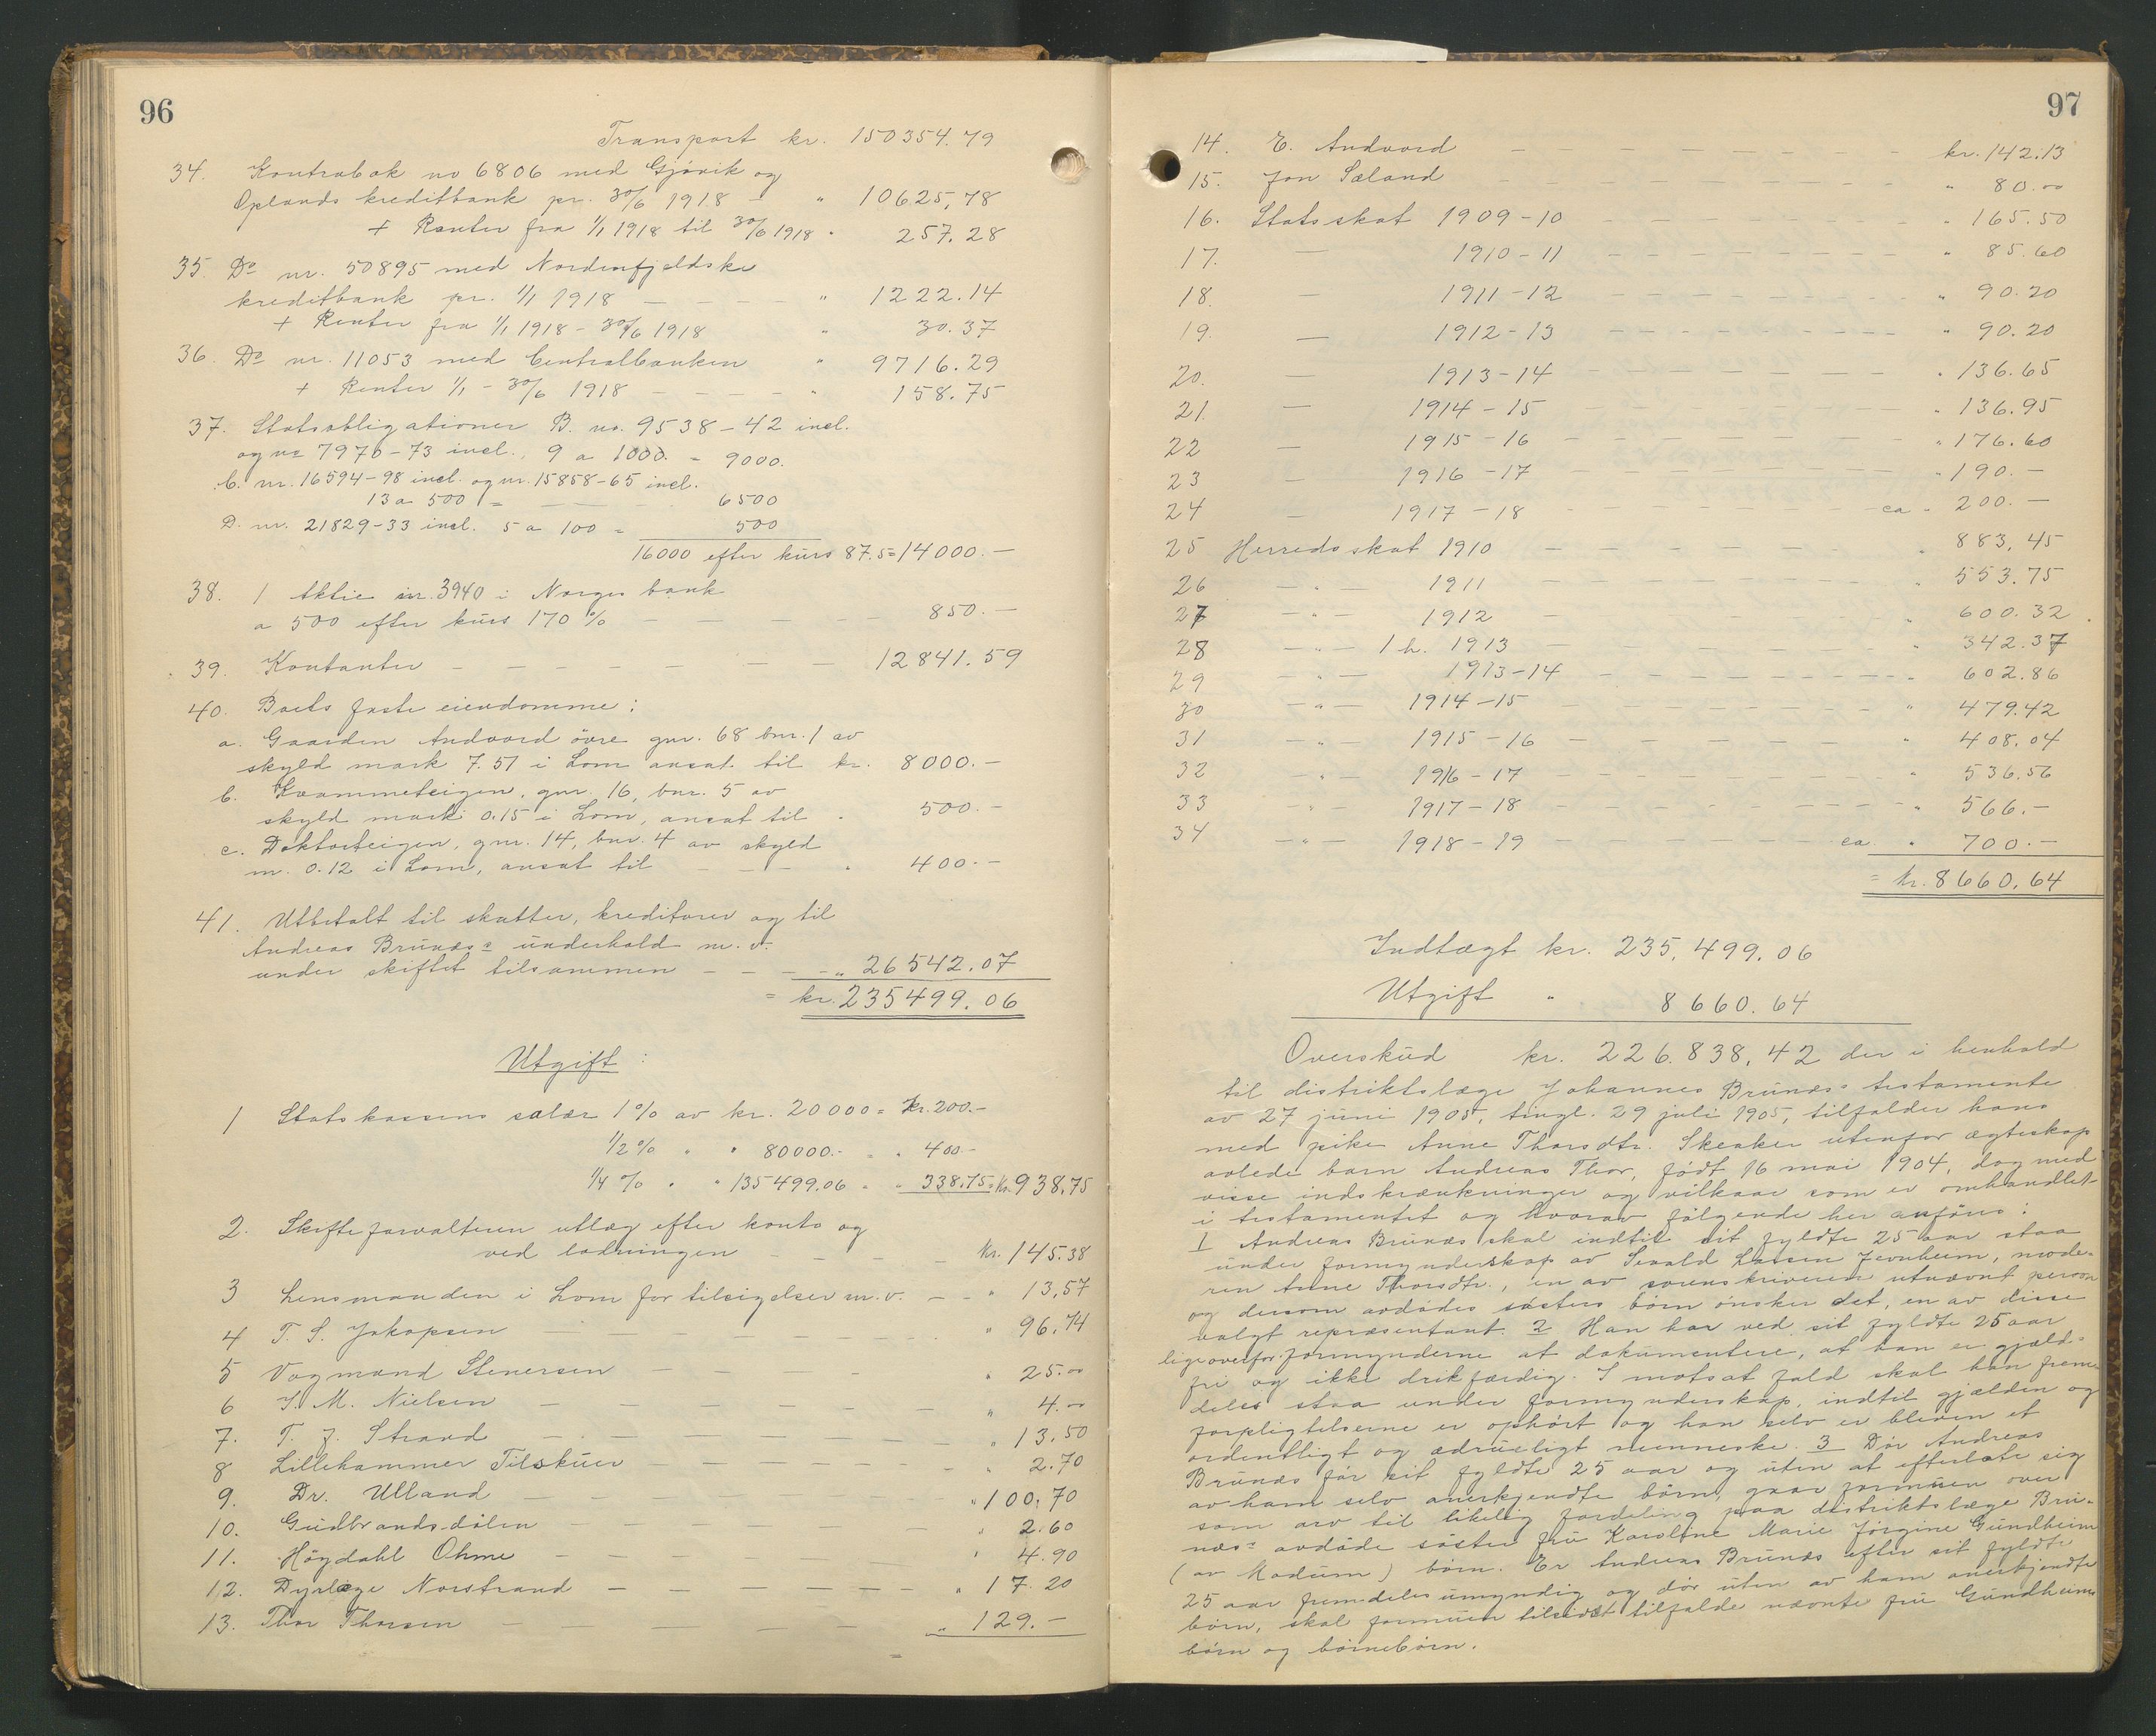 96
Transport kr. 150354.79
34. Kontrabok no 6806 med Gjövik og
Oplands kreditbank pr. 30/6 1918 — " 10625,78
+ Renter fra 1/1 1918 til 30/6 1918 " 257.28
35. Do nr. 50895 med Nordenfjeldske
kreditbank pr. 1/1 1918 — — — " 1222.14
+ Renter fra 1/1 1918 - 30/6 1918 " 30.37
36. Do nr. 11053 med Centralbanken " 9716.29
+ Renter 1/1 - 30/6 1918 — — — " 158.75
37. Statsobligationer B. no. 9538-42 incl.
og no 7970-73 incl., 9 a 1000. = 9000.
C. nr. 16594-98 incl. og nr. 15858-65 incl.
13 a 500 = — — 6500
D. nr. 21829-33 incl. 5 a 100 = 500
16000 efter kurs 87.5 = 14000.—
38. 1 Aktie nr. 3940 i Norges bank
a 500 efter kurs 170 % — — — — 850.—
39. Kontanter — — — — — — 12841.59
40. Boets faste eiendomme:
a. Gaarden Andvord övre gnr. 68 bnr. 1 av
skyld mark 7.51 i Lom ansat til kr. 8000.—
b. Kvammeteigen, gnr. 16, bnr. 5 av
skyld mark 0.15 i Lom, ansat til " 500.—
c. Doktorteigen, gnr. 14, bnr. 4 av skyld
m. 0.12 i Lom, ansat til — — — " 400.—
41. Utbetalt til skatter, kreditorer og til
Andreas Brunæs's underhold m. v.
under skiftet tilsammen — — — — " 26542.07
= kr. 235499.06
Utgift:
1 Statskassens salær 1% av kr. 20000 = kr. 200.—
1/2 % " " 80000.— = " 400.—
1/4 % " " 135499.06 = " 338.75 = kr. 938,75
2. Skifteforvalteren utlæg efter konto og
ved lodningen — — — kr. 145.38
3 Lensmanden i Lom for tilsigelser m. v. — — " 13,57
4 T. S. Jakopsen — — — — — " 96,74
5 Vogmand Stenersen — — — — " 25.00
6 J. M. Nielsen — — — — — " 4.00
7. T. J. Strand — — — — — " 13,50
8 Lillehammer Tilskuer — — — — " 2.70
9. Dr. Ulland — — — — — " 100,70
10. Gudbrandsdölen — — — — " 2.60
11. Högdahl Ohme — — — — " 4.90
12. Dyrlæge Norstrand — — — — " 17.20
13. Thor Thorsen — — — — — " 129.—
97
14. E. Andvord — — — — — kr. 142.13
15. Jon Sæland — — — — — " 80.00
16. Statsskat 1909-10 — — — — " 165.50
17. — 1910-11 — — — — " 85.60
18. — 1911-12 — — — — " 90.20
19. — 1912-13 — — — — " 90.20
20. — 1913-14 — — — — " 136.65
21. — 1914-15 — — — — " 136.95
22 — 1915-16 — — — — " 176.60
23 — 1916-17 — — — — " 190.—
24 — 1917-18 — — — — ca " 200.—
25 Herredsskat 1910 — — — — " 883,45
26 — " — 1911 — — — — " 553.75
27 — " — 1912 — — — — " 600.32
28 — " — 1 h. 1913 — — — — " 342.37
29 — " — 1913-14 — — — — " 602.86
30 — " — 1914-15 — — — — " 479.42
31 — " — 1915-16 — — — — " 408.04
32 — " — 1916-17 — — — — " 536.56
33 — " — 1917-18 — — — — " 566.—
34 — " — 1918-19 — — — — ca. " 700.—
= kr. 8660,64
Indtægt kr. 235,499.06
Utgift " 8660.64
Overskud kr. 226.838,42 der i henhold
til distriktslæge Johannes Brunæs's testamente
av 27 juni 1905, tingl. 29 juli 1905, tilfalder hans
med pike Anne Thorsdtr. Skeaker utenfor ægteskap
avlede barn Andreas Thor, født 16 mai 1904, dog med
visse indskrænkninger og vilkaar som er omhandlet
i testamentet og hvorav følgende her anføres:
1 Andreas Brunæs skal indtil sit fyldte 25 aar staa
under formynderskap av Sevald Larsen Jernheim, mode-
ren Anne Thorsdtr., en av sorenskriveren utnævnt person
og dersom avdødes søsters børn ønsker det, en av disse
valgt repræsentant. 2 Han har ved sit fyldte 25 aar
ligeoverfor formynderne at dokumentere, at han er gjæld-
fri og ikke drikfærdig. I motsat fald skal han frem-
deles staa under formynderskap, indtil gjælden og
forpligtelserne er ophørt og han selv er bleven et
ordentligt og ædrueligt menneske. 3 Dör Andreas
Brunæs før sit fyldte 25 aar og uten at efterlate sig
av ham selv anerkjendte börn, gaar formuen over
som arv til likelig fordeling paa distriktslæge Bru-
næs's avdøde søster fru Karoline Marie Jörgine Gundheim
(av Modum) börn. Er Andreas Brunæs efter sit fyldte
25 aar fremdeles umyndig og dör uten av ham anerkjendte
börn, skal formuen tilsidst tilfalde nævnte fru Gundheims
börn og börnebörn.